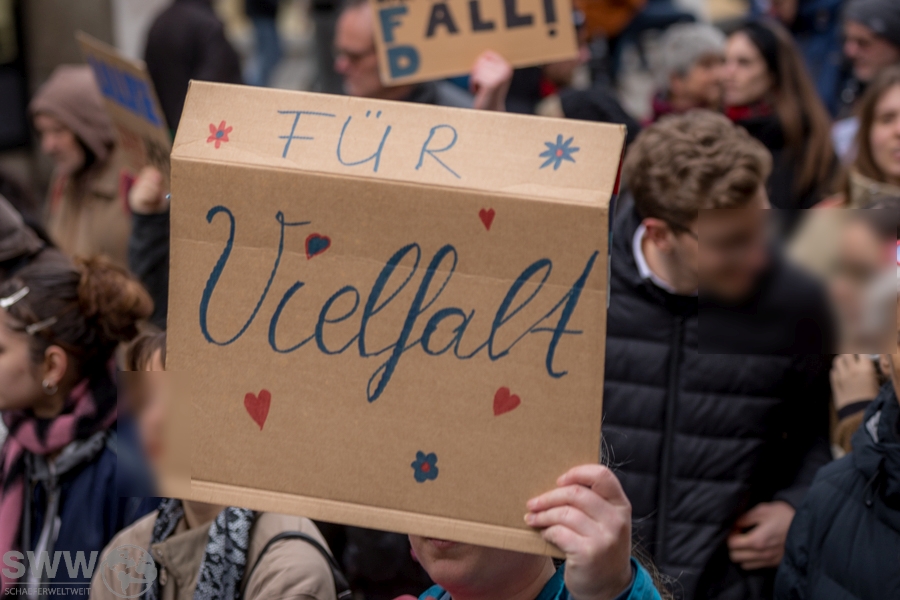 FD
ALL!
FÜR
Vielfalt
SWW
SCHAEFERWELTWEIT